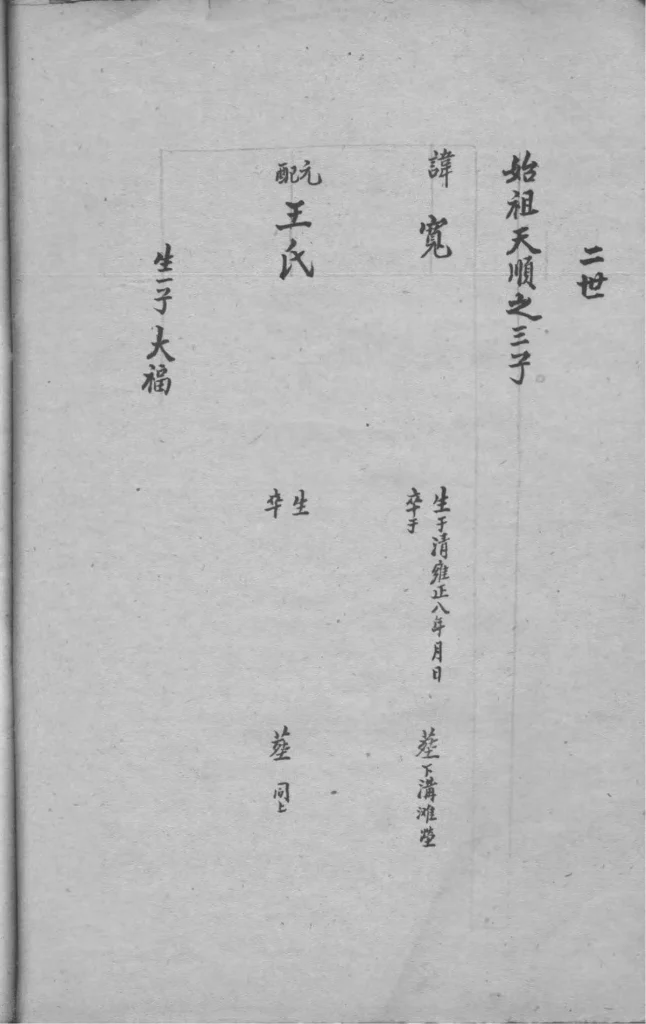 二世
始祖天順之三子
諱寬
生于清雍正八年月日
卒于
塟下溝灘塋
元配王氏
生
卒
塟同上
生一子大福